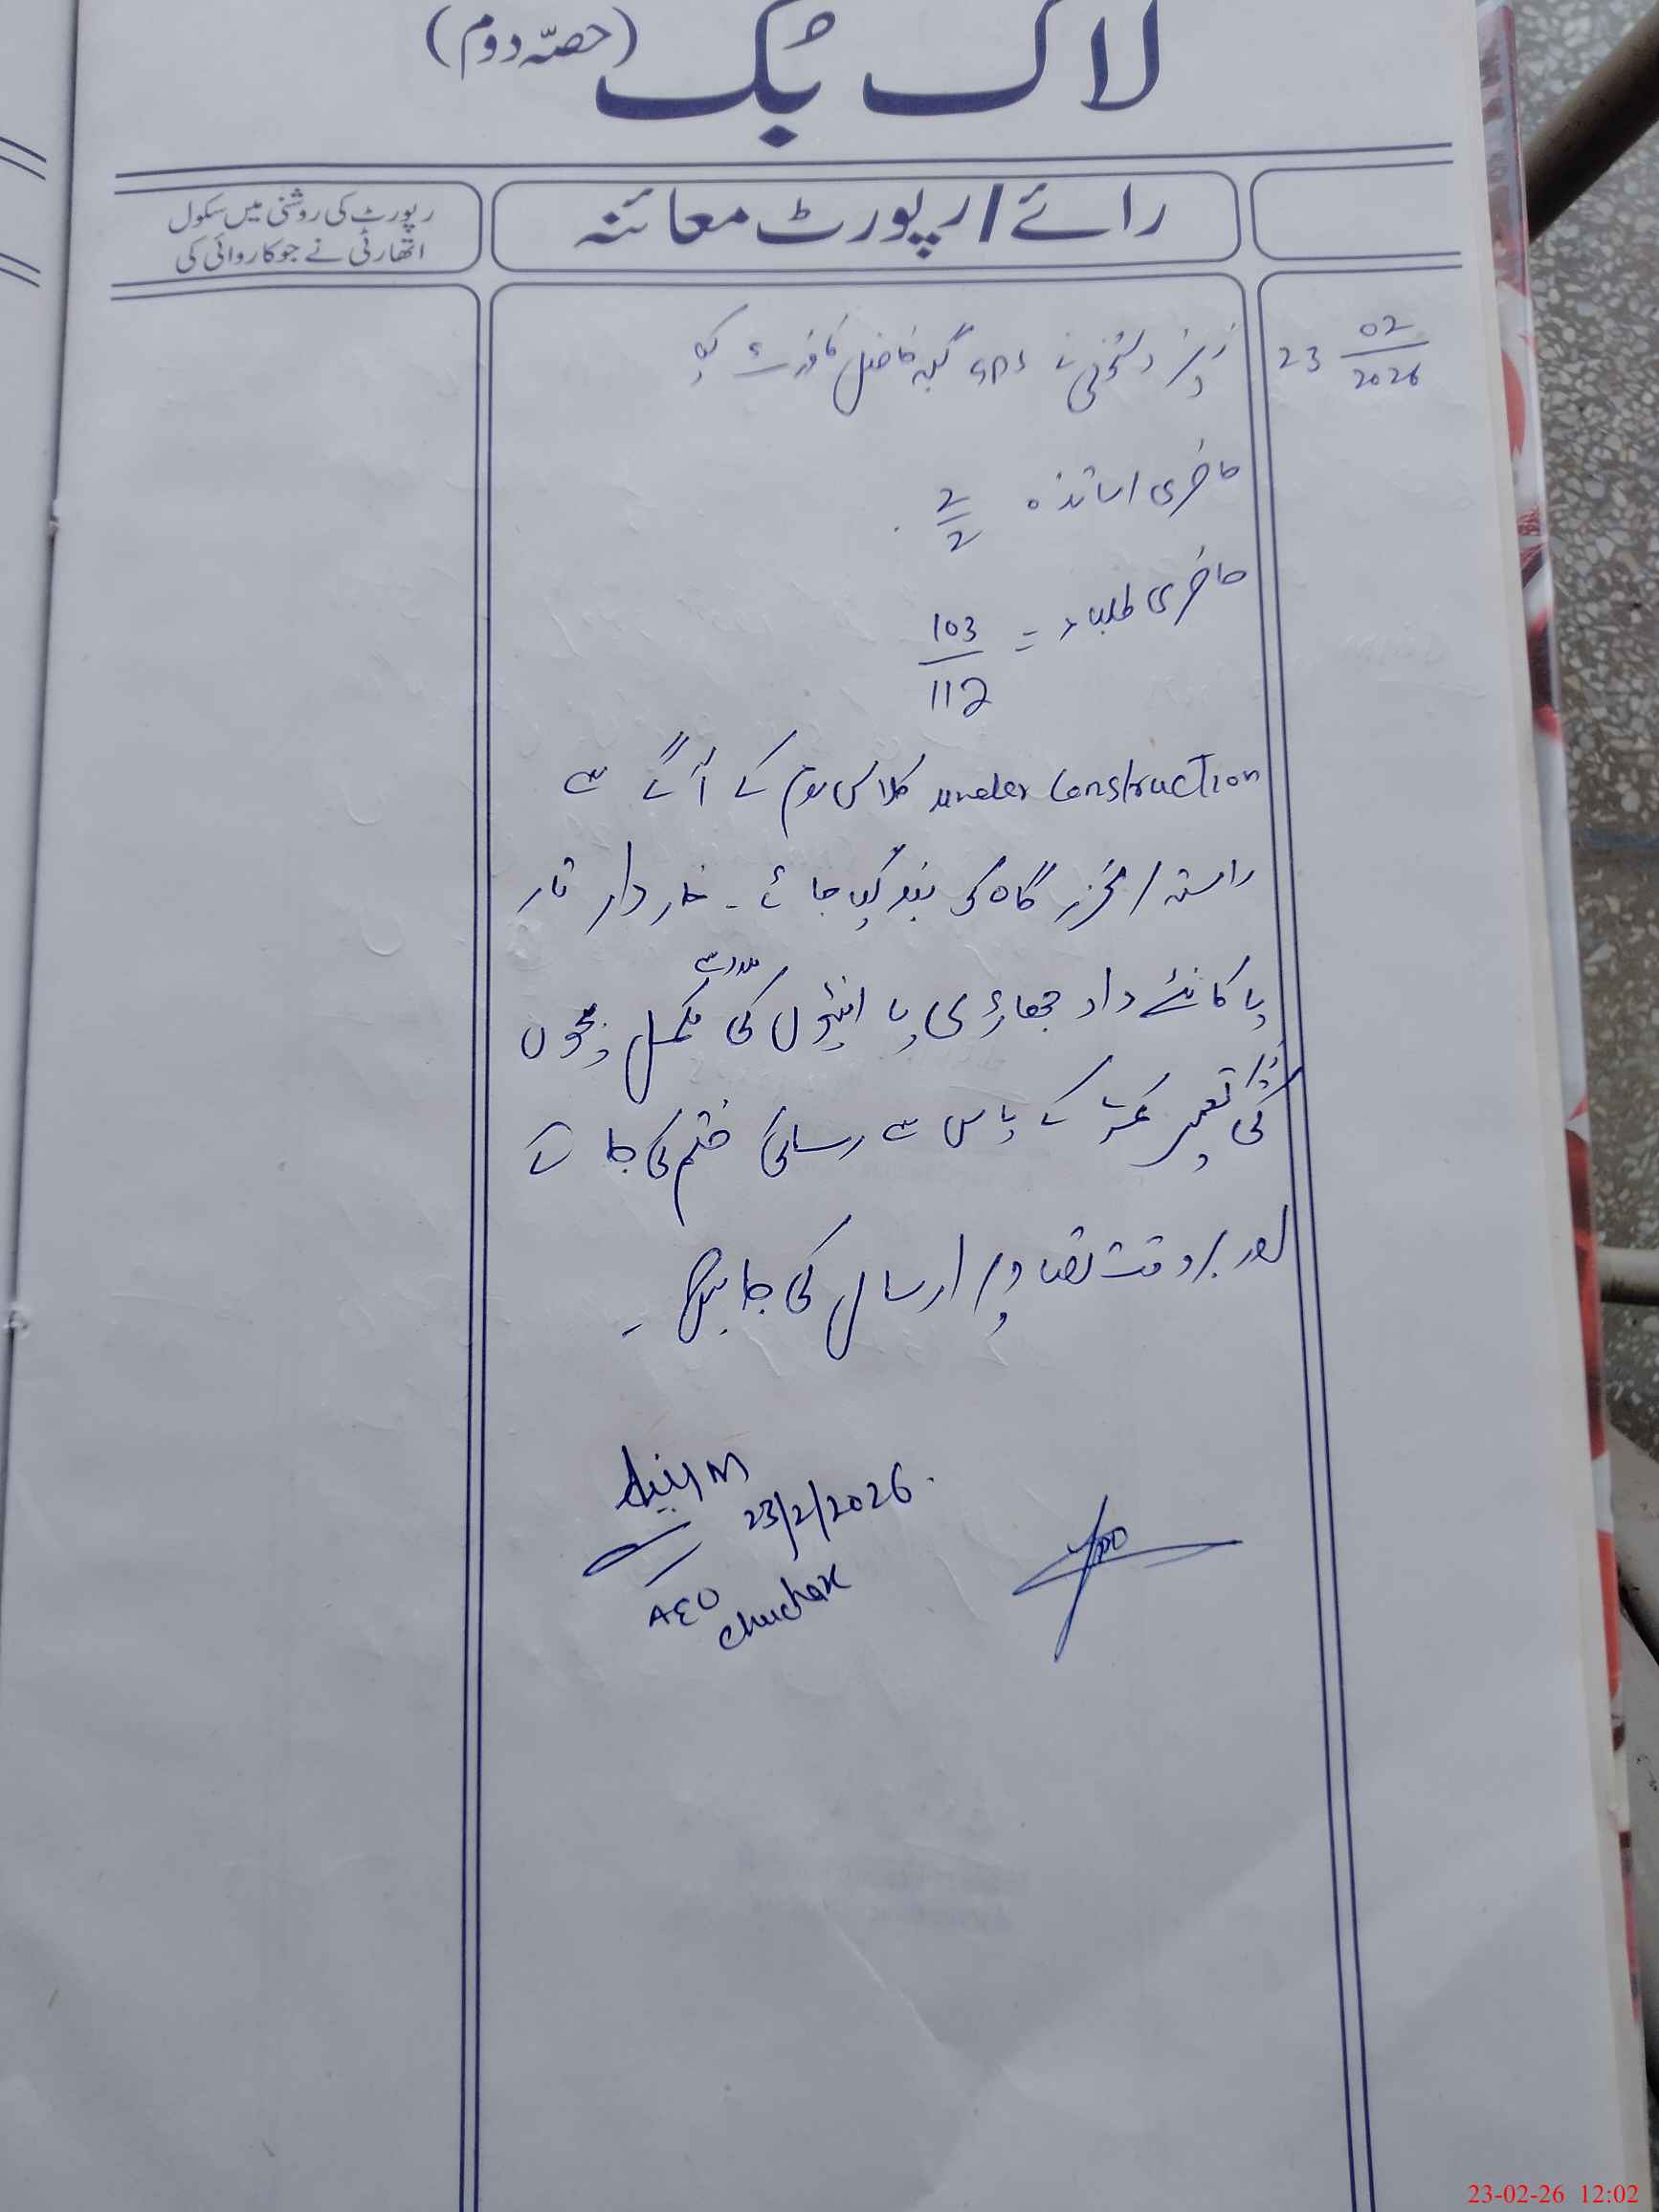 لاگ بک (حصّہ دوم)
رائے/رپورٹ معائنہ
رپورٹ کی روشنی میں سکول
اتھارٹی نے جو کاروائی کی
23 02/2026
زیر دستخطی نے GPS گلہ فاضل کا وزٹ کیا
حاضری اساتذہ 2/2
حاضری طلباء = 103/112
under Construction کلاس روم کے آگے سے
راستہ / گزر گاہ کو بند کیا جائے۔ خار دار تار
یا کانٹے دار جھاڑی یا اینٹوں کی مدد سے مکمل بچوں
کی زیر تعمیر کے پاس سے رسائی ختم کی جائے
اور بروقت تصاویر ارسال کی جائیں۔
Anjum
23/2/2026.
AEO
Chuchak
23-02-26 12:02